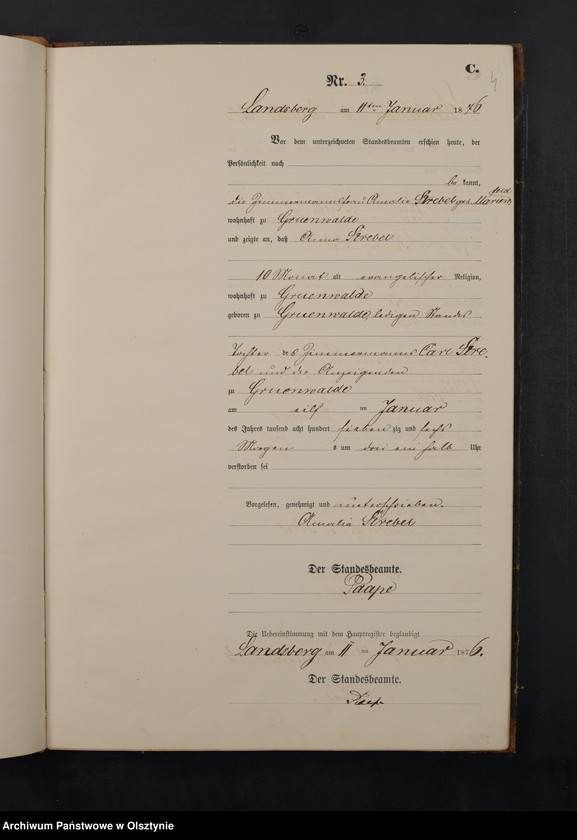 C.
4
Nr. 3.
Landsberg am 11ten Januar 1876
Vor dem unterzeichneten Standesbeamten erschien heute, der
Persönlichkeit nach
be kannt,
die Zimmermannsfrau Amalie Strebel geb. Marienfeld
wohnhaft zu Gruenwalde
und zeigte an, daß Anna Strebel
10 Monat alt evangelischer Religion,
wohnhaft zu Gruenwalde
geboren zu Gruenwalde, ledigen Standes
Tochter des Zimmermanns Carl Stre-
bel und der Anzeigenden
zu Gruenwalde
am eilf ten Januar
des Jahres tausend acht hundert sieben zig und sechs
Morgen s um drei ein halb Uhr
verstorben sei
Vorgelesen, genehmigt und unterschrieben.
Amalie Strebel
Der Standesbeamte.
Paape
Die Uebereinstimmung mit dem Hauptregister beglaubigt
Landsberg am 11 ten Januar 1876.
Der Standesbeamte.
Paape
Archiwum Państwowe w Olsztynie